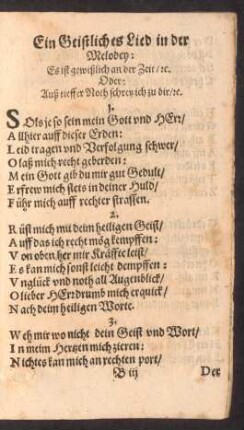 Ein Geistliches Lied in der
Melodey:
Es ist gewißlich an der Zeit/ ꝛc.
Oder:
Auß tieffer Noth schrey ich zu dir/ꝛc.
1.
SOls je so sein mein Gott vnd HErr/
Allhier auff dieser Erden:
Leid tragen vnd Verfolgung schwer/
O laß mich recht geberden:
Mein Gott gib du mir gut Gedult/
Erfrew mich stets in deiner Huld/
Führ mich auff rechter strassen.
2.
Rüst mich mit deim heiligen Geist/
Auff das ich recht mög kempffen:
Von oben her mir Kräffte leist/
Es kan mich sonst leicht dempffen:
Vnglück vnd noth all Augenblick/
O lieber HErr drumb mich erquick/
Nach deim heiligen Worte.
3.
Weh mir wo nicht dein Geist vnd Wort/
In meim Hertzen mich zieren:
Nichtes kan mich an rechten port/
B iij
Der